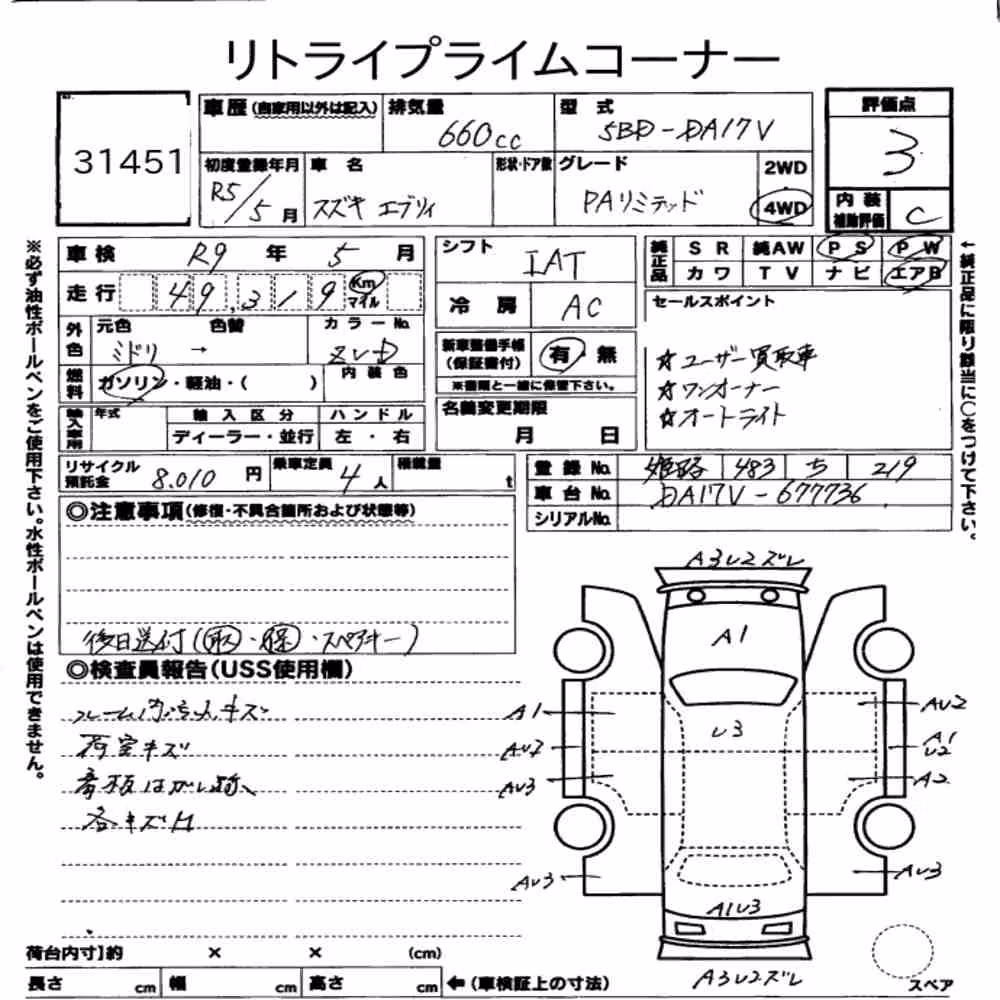 リトライプライムコーナー
31451
車歴 (自家用以外は記入) 排気量 660cc 型式 5BD-DA17V 評価点 3
初度登録年月 R5/5月 車名 スズキ エブリィ 形状・ドア数 グレード PAリミテッド 2WD 4WD 内装補助評価 C
車検 R9年 5月 シフト IAT 純正品 SR 純AW PS PW
カワ TV ナビ エアB
走行 49,319 Km マイル 冷房 AC
外色 元色 色替 カラーNo.
ミドリ → ZVD 内装色
燃料 ガソリン・軽油・( )
新車整備手帳 (保証書付) 有・無
※書類と一緒に保管下さい。
セールスポイント
☆ユーザー買取車
☆ワンオーナー
☆オートライト
輸入車用 年式 輸入区分 ハンドル
ディーラー・並行 左・右
名義変更期限
月 日
リサイクル預託金 8,010円 乗車定員 4人 積載量 t
登録No. 姫路 483 ち 219
車台No. DA17V-677736
シリアルNo.
※必ず油性ボールペンをご使用下さい。水性ボールペンは使用できません。
↑純正品に限り該当に○をつけて下さい。
◎注意事項 (修復・不具合箇所および状態等)
後日送付(取・保・スペアキー)
◎検査員報告(USS使用欄)
荷室キズ
看板はがし跡
各キズH
A3U2ズレ
A1
U3
A1
AU2
AU3
AU3
AU2
A1
U2
A2
AU3
A1U3
A3U2ズレ
スペア
荷台内寸】約 × × (cm)
長さ cm 幅 cm 高さ cm ←(車検証上の寸法)